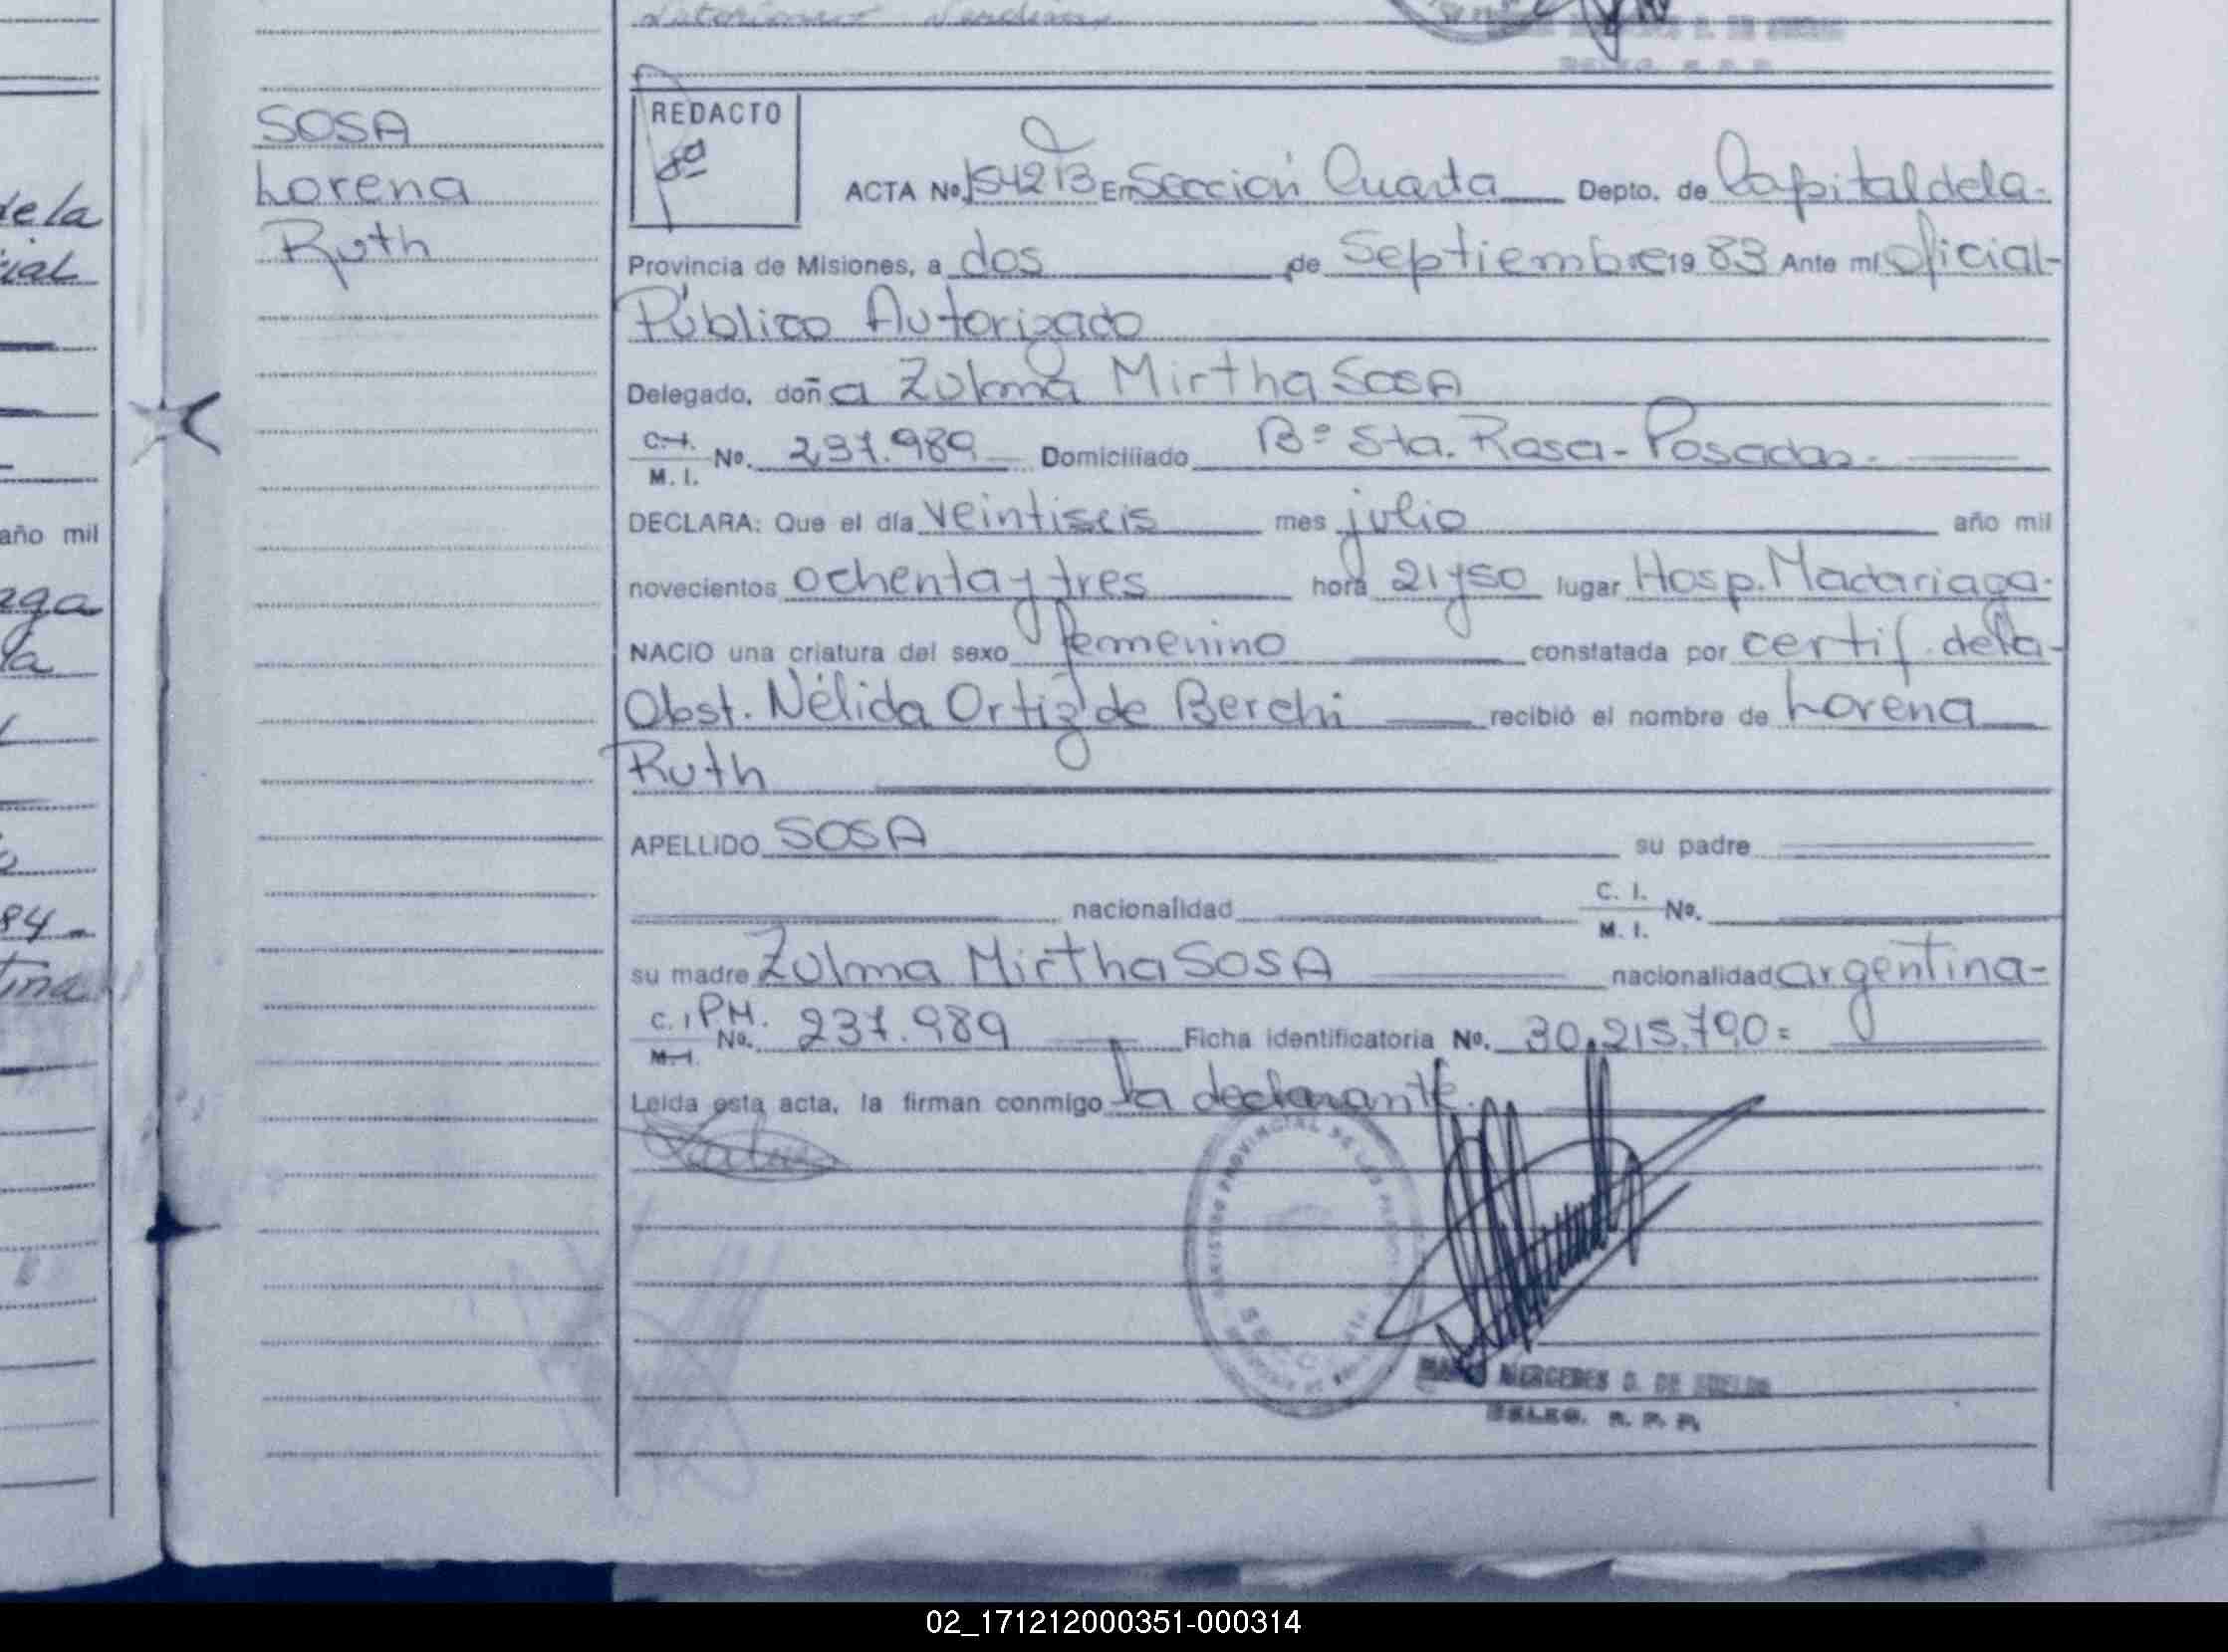 SOSA
Lorena
Ruth
REDACTO
ACTA No. En Sección Cuarta Depto. de Capital de la-
Provincia de Misiones, a dos de Septiembre 19 83 Ante mí Oficial-
Público Autorizado
Delegado, doña Zulma Mirtha SOSA
C.I.
M. I. No. 237.989 Domiciliado Bº Sta. Rosa - Posadas.-
DECLARA: Que el día veintiseis mes julio año mil
novecientos ochenta y tres hora 21 y 50 lugar Hosp. Madariaga.
NACIO una criatura del sexo femenino constatada por certif. de la-
Obst. Nélida Ortiz de Berchi recibió el nombre de Lorena
Ruth
APELLIDO SOSA su padre
nacionalidad C. I.
M. I. No.
su madre Zulma Mirtha SOSA nacionalidad argentina-
C. I P.M.
M.I. No. 237.989 Ficha identificatoria No. 30.215.790=
Leída esta acta, la firman conmigo la declarante.
MERCEDES G. DE
DELEG. R. P. P.
de la
cial
año mil
aga
la
84-
tina
02_171212000351-000314